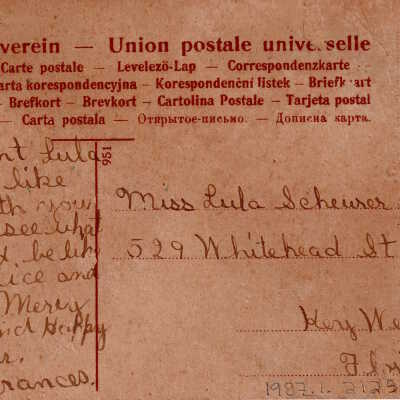 verein — Union postale universelle
Carte postale — Levelező-Lap — Correspondenzkarte
arta korespondencyjna — Korespondenční listek — Briefkaart
— Brefkort — Brevkort — Cartolina Postale — Tarjeta postal
— Carta postala — Открытое-письмо. — Дописна карта.
951
nt Lula
like
th you
see what
be
ice and
Merry
nd Happy
r.
rances.
Miss Lula Scheurer
529 Whitehead St
Key We
1987.1.2125